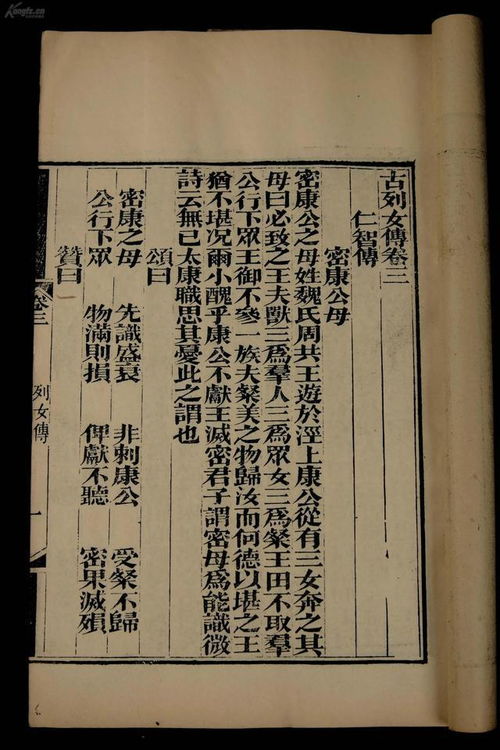 古列女傳卷三
仁智傳
密康公母
密康公之母姓魏氏周共王遊於涇上康公從有三女奔之其
母曰必致之王夫獸三爲羣人三爲眾女三爲粲王田不取羣
公行下眾王御不參一族夫粲美之物歸汝而何德以堪之王
猶不堪况爾小醜乎康公不獻王滅密君子謂密母爲能識微
詩云無已太康職思其憂此之謂也
頌曰
密康之母 先識盛衰 非刺康公 受粲不歸
公行下眾 物滿則損 俾獻不聽 密果滅殞
贊曰
卷三
列女傳
一
Kongfz.cn